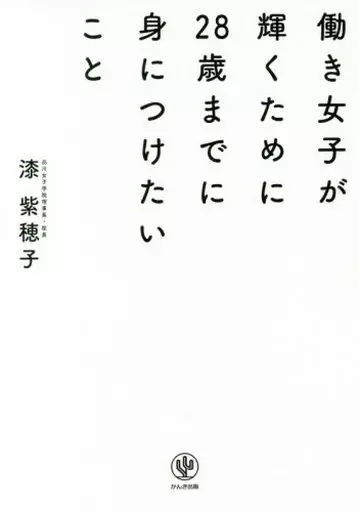 働き女子が
輝くために
28歳までに
身につけたい
こと
品川女子学院理事長・院長
漆 紫穂子
かんき出版